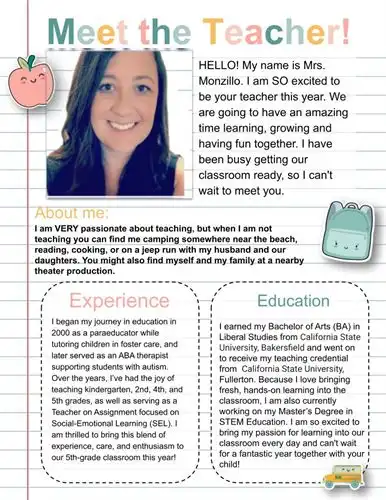 Meet the Teacher!
HELLO! My name is Mrs.
Monzillo. I am SO excited to
be your teacher this year. We
are going to have an amazing
time learning, growing and
having fun together. I have
been busy getting our
classroom ready, so I can't
wait to meet you.
About me:
I am VERY passionate about teaching, but when I am not
teaching you can find me camping somewhere near the beach,
reading, cooking, or on a jeep run with my husband and our
daughters. You might also find myself and my family at a nearby
theater production.
Experience
I began my journey in education in
2000 as a paraeducator while
tutoring children in foster care, and
later served as an ABA therapist
supporting students with autism.
Over the years, I've had the joy of
teaching kindergarten, 2nd, 4th, and
5th grades, as well as serving as a
Teacher on Assignment focused on
Social-Emotional Learning (SEL). I
am thrilled to bring this blend of
experience, care, and enthusiasm to
our 5th-grade classroom this year!
Education
I earned my Bachelor of Arts (BA) in
Liberal Studies from California State
University, Bakersfield and went on
to receive my teaching credential
from California State University,
Fullerton. Because I love bringing
fresh, hands-on learning into the
classroom, I am also currently
working on my Master's Degree in
STEM Education. I am so excited to
bring my passion for learning into our
classroom every day and can't wait
for a fantastic year together with your
child!